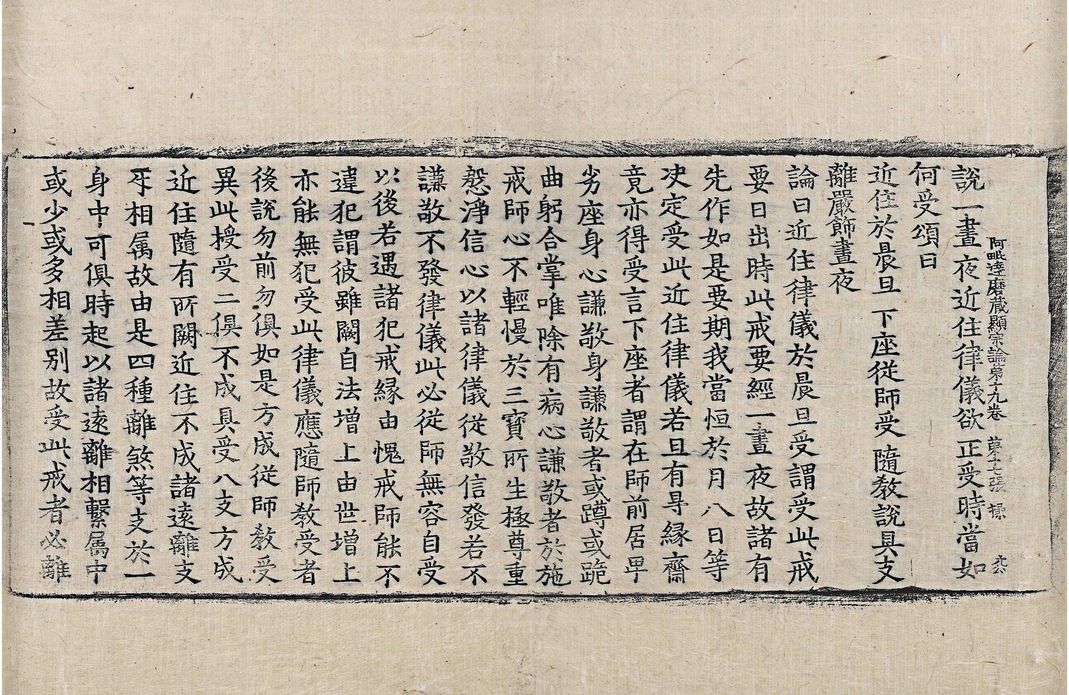 說一晝夜近住律儀欲正受時當如
何受頌曰
近住於晨旦 下座從師受 隨教說具支
離嚴飾晝夜
論曰近住律儀於晨旦受謂受此戒
要日出時此戒要經一晝夜故諸有
先作如是要期我當恒於月八日等
决定受此近住律儀若旦有㝵緣齋
竟亦得受言下座者謂在師前居卑
劣座身心謙敬身謙敬者或蹲或跪
曲躬合掌唯除有病心謙敬者於施
戒師心不輕慢於三寶所生極尊重
慇淨信心以諸律儀從敬信發若不
謙敬不發律儀此必從師無容自受
以後若遇諸犯戒緣由愧戒師能不
違犯謂彼雖闕自法增上由世增上
亦能無犯受此律儀應隨師教受者
後說勿前勿俱如是方成從師教受
異此授受二俱不成具受八支方成
近住隨有所闕近住不成諸遠離支
互相属故由是四種離煞等支於一
身中可俱時起以諸遠離相繫属中
或少或多相差別故受此戒者必離
阿毗達磨藏顯宗論第十九卷 第十七張 操